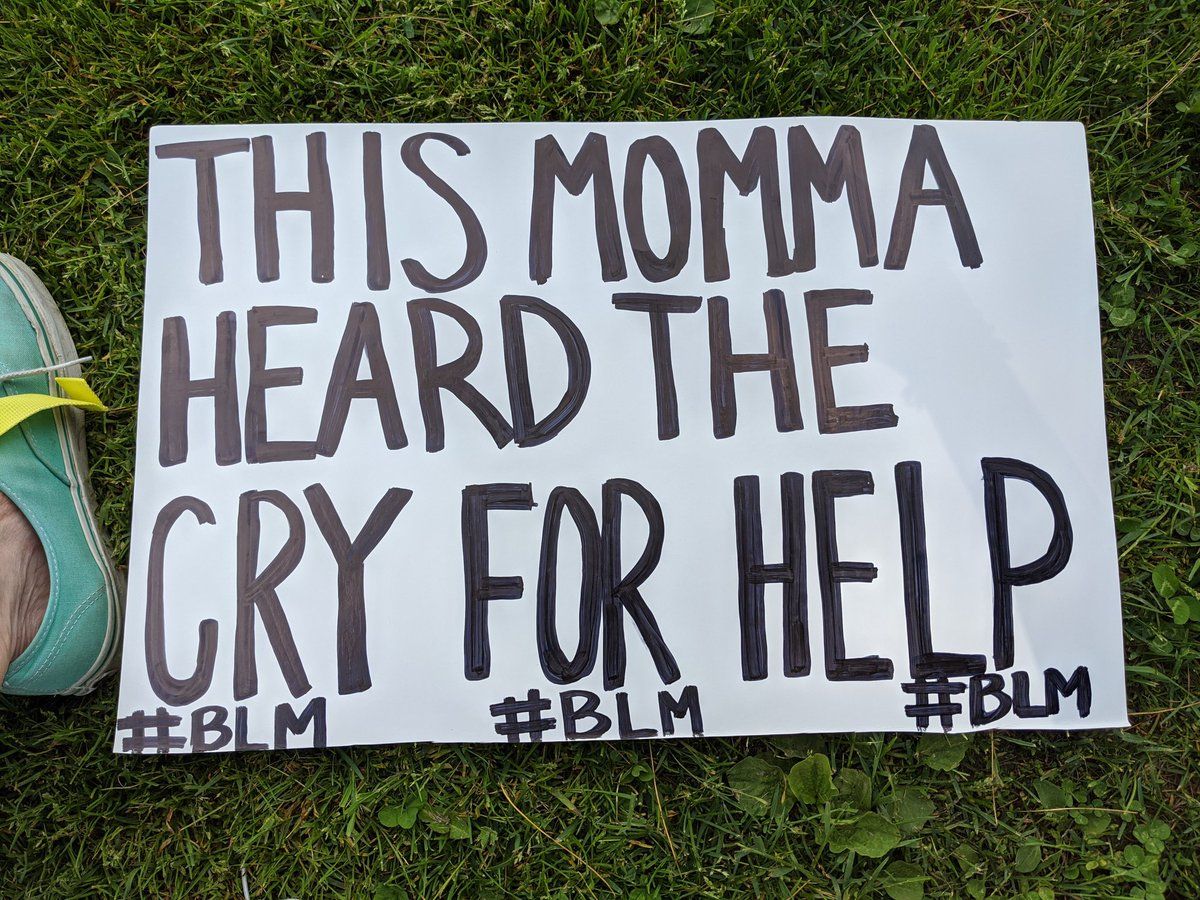 THIS MOMMA
HEARD THE
CRY FOR HELP
#BLM #BLM #BLM